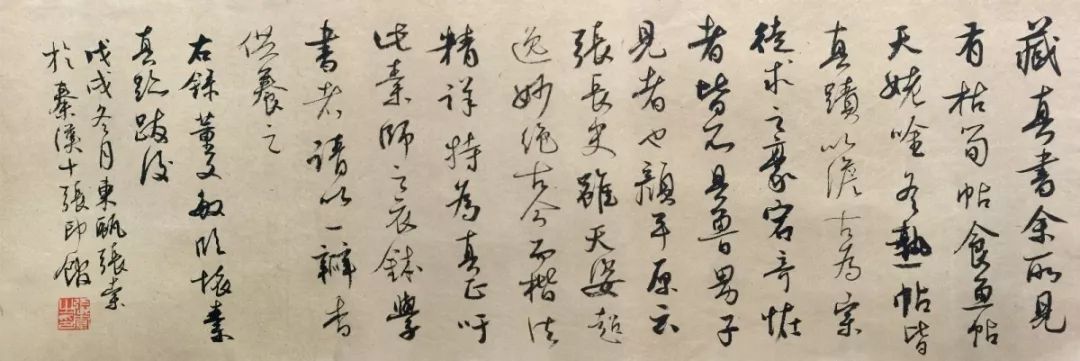 藏真書余所見
有枯筍帖食魚帖
天姥唫冬熱帖皆
真蹟以澹古為宗
徒求之豪宕奇怪
者皆不具魯男子
見者也顏平原云
張長史雖天姿超
逸妙絕古今而楷法
精詳特為真正吁
此素師之衣鉢學
書者請以一瓣香
供養之
右錄董文敏懷素
真跡跋後
戊戌冬月東甌張索
於秦漢十張印館